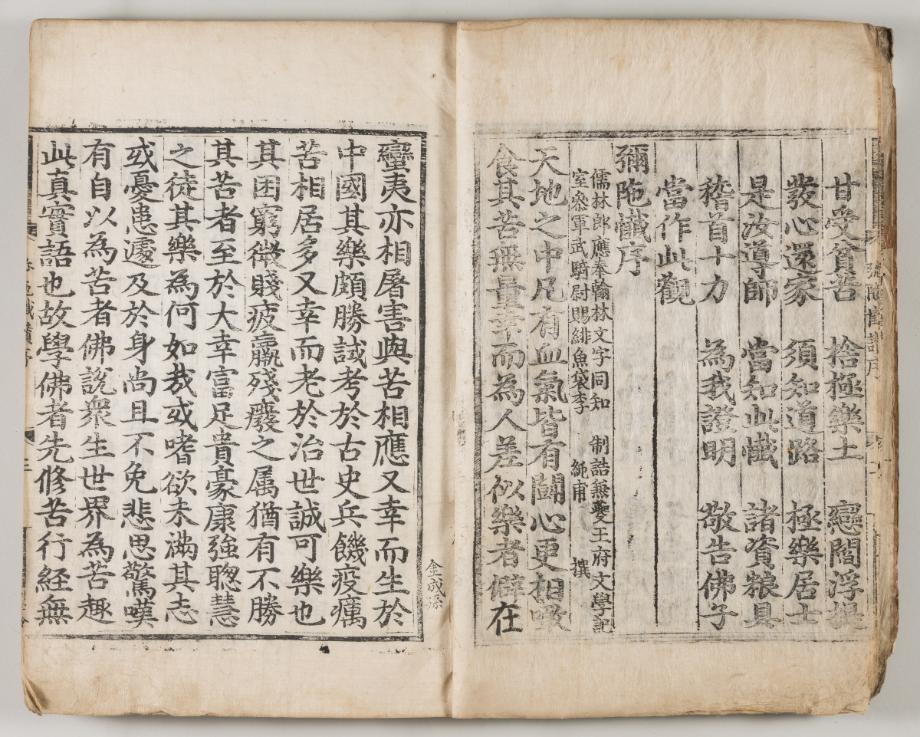 甘受貧苦　捨極樂土　戀閻浮提
發心還家　須知道路　極樂居士
是汝導師　當知此懺　諸資粮具
稽首十力　為我證明　敬告佛子
當作此觀
彌陁懺序
儒林郎應奉翰林文字同知　制誥兼夔王府文學記
室叅軍武騎尉賜緋魚袋李　純甫　撰
天地之中凡有血氣皆有鬪心更相
食其苦無量幸而為人差似樂者僻在
蠻夷亦相屠害與苦相應又幸而生於
中國其樂頗勝試考於古史兵饑疫癘
苦相居多又幸而老於治世誠可樂也
其困窮微賤疲羸殘廢之属猶有不勝
其苦者至於大幸富足貴豪康強聰慧
之徒其樂為何如㢤或嗜欲未滿其志
或憂患遽及於身尚且不免悲思驚嘆
有自以為苦者佛說衆生世界為苦趣
此真實語也故學佛者先修苦行經無